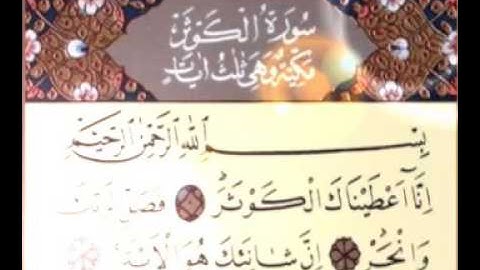 سُورَةُ الْكَوْثَرِ
مَكِّيَّةٌ وَهِيَ ثَلٰثُ اٰيَاتٍ
بِسْمِ اللّٰهِ الرَّحْمٰنِ الرَّحِيمِ
اِنَّٓا اَعْطَيْنَاكَ الْكَوْثَرَ فَصَلِّ لِرَبِّكَ
وَانْحَرْ اِنَّ شَانِئَكَ هُوَ الْاَبْتَرُ